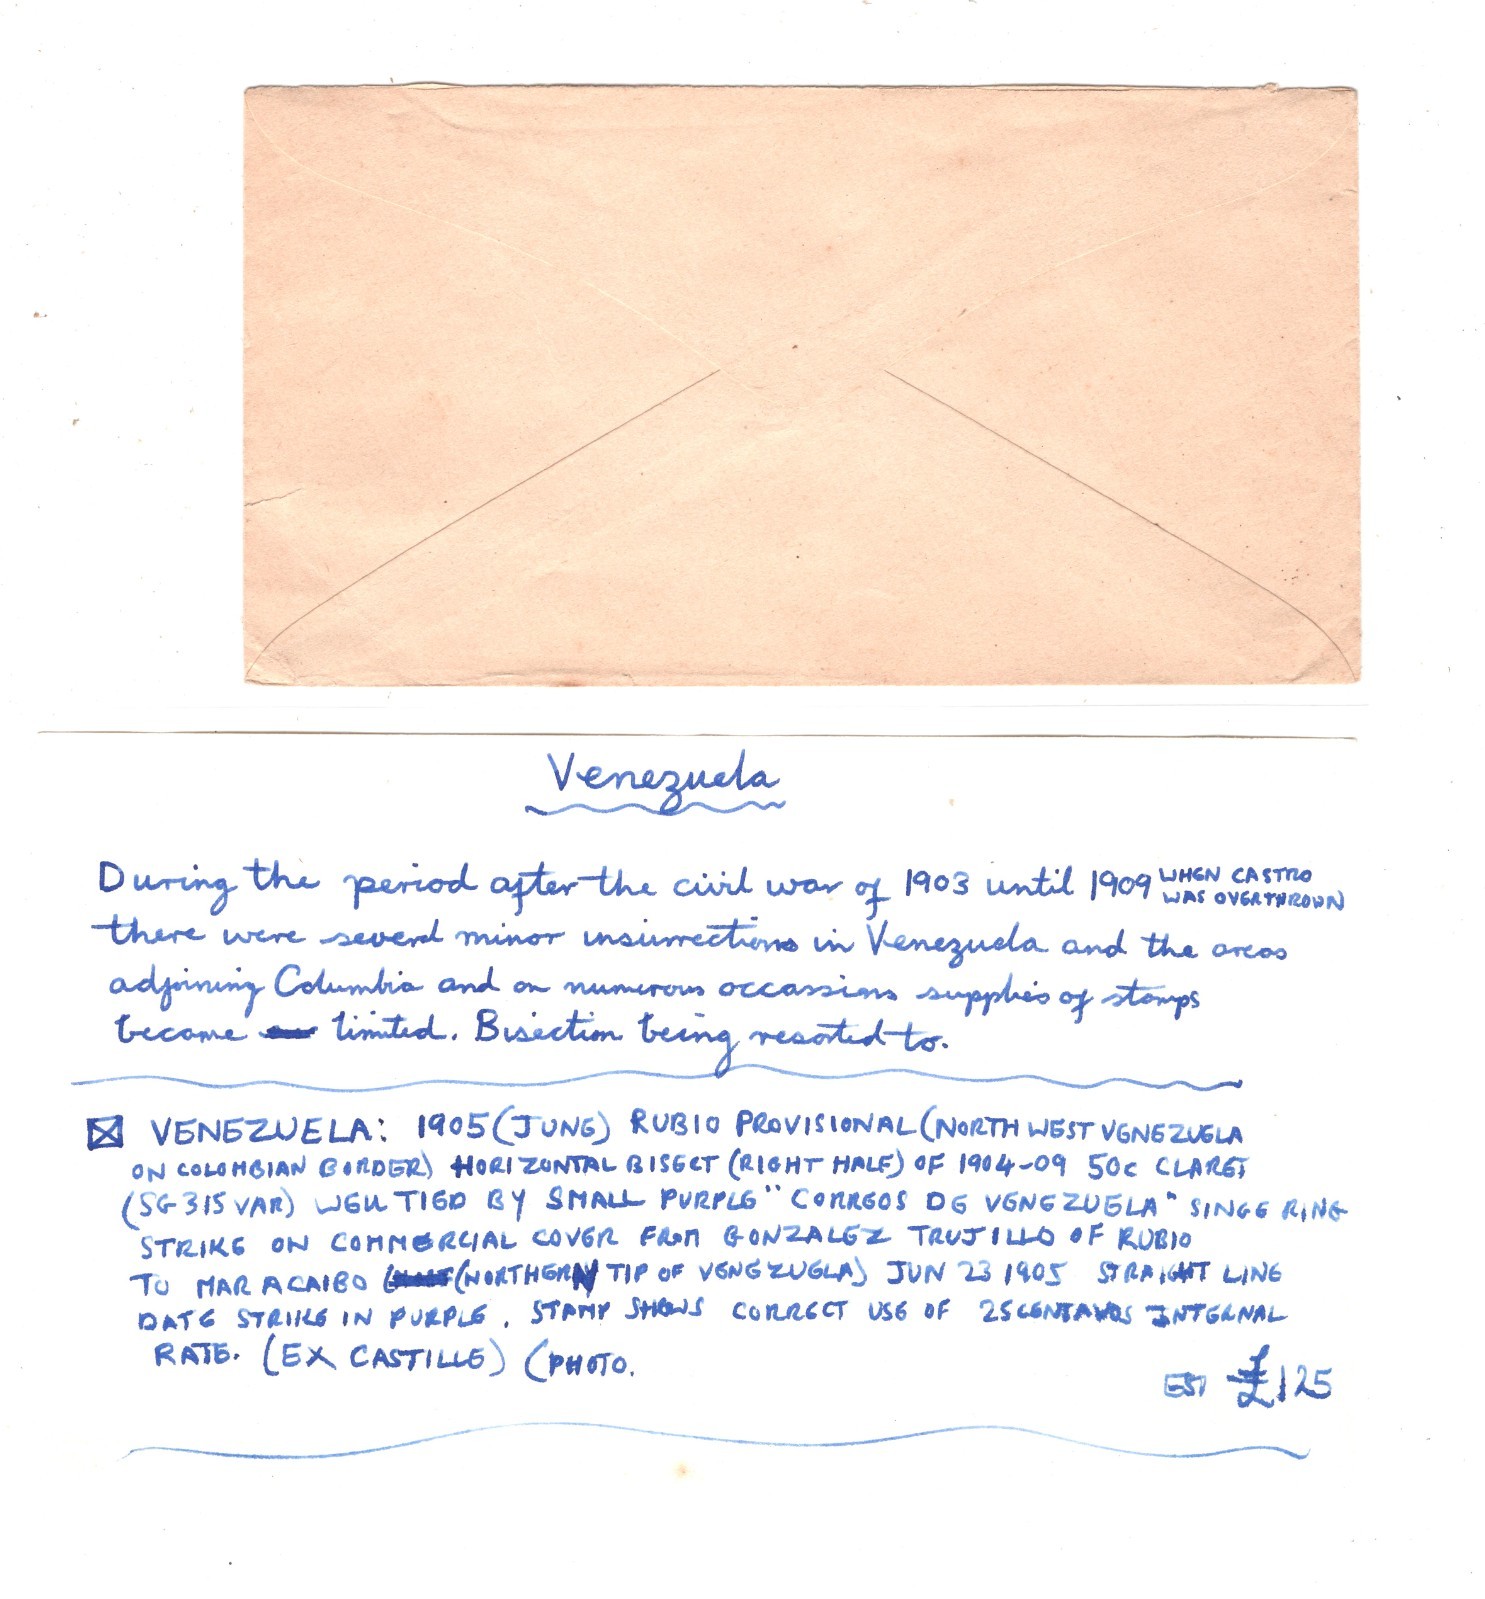 Venezuela
During the period after the civil war of 1903 until 1909 WHEN CASTRO
WAS OVERTHROWN
there were several minor insurrections in Venezuela and the areas
adjoining Columbia and on numerous occassions supplies of stamps
became limited. Bisection being resorted to.
VENEZUELA: 1905 (JUNE) RUBIO PROVISIONAL (NORTH WEST VENEZUELA
ON COLOMBIAN BORDER) HORIZONTAL BISECT (RIGHT HALF) OF 1904-09 50c CLARET
(SG 315 VAR) WELL TIED BY SMALL PURPLE "CORREOS DE VENEZUELA" SINGE RING
STRIKE ON COMMERCIAL COVER FROM GONZALEZ TRUJILLO OF RUBIO
TO MARACAIBO (NORTHERN TIP OF VENEZUELA) JUN 23 1905 STRAIGHT LINE
DATE STRIKE IN PURPLE. STAMP SHOWS CORRECT USE OF 25 CENTAVOS INTERNAL
RATE. (EX CASTILLE) (PHOTO.
EST £125